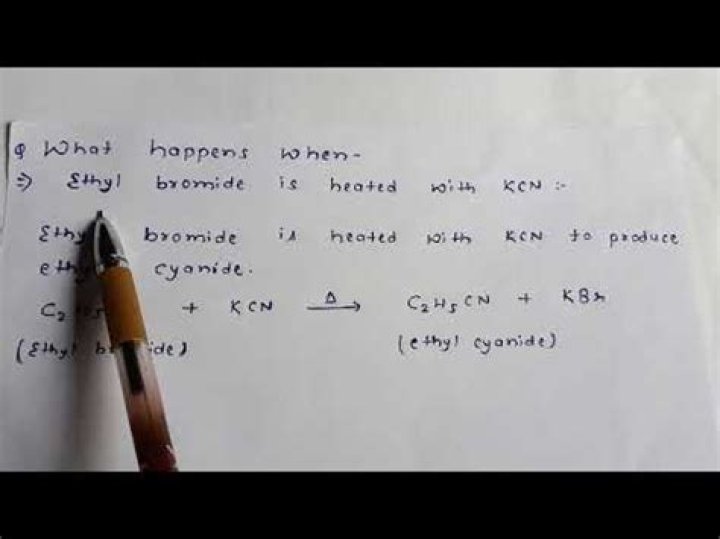 Q What happens when-
⇒ Ethyl bromide is heated with KCN :-
bromide is heated with KCN to produce
cyanide.
C2 + KCN Δ→ C2H5CN + KBr
(Ethyl (ethyl cyanide)